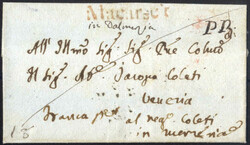 Macarsca
in Dalmazia
P.P.
All' Illmo Sig. Sig. Pne Colmo
Il Sig. Ab. Jacopo Coleti
Venezia
franca per
al neg. Coleti
in merzeria